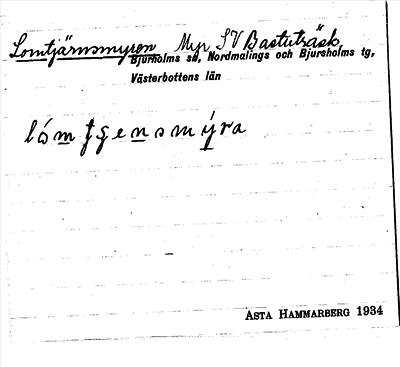 Lomtjärnsmyren Myr SV Bastuträsk,
Bjurholms sn, Nordmalings och Bjursholms tg,
Västerbottens län
ASTA HAMMARBERG 1934